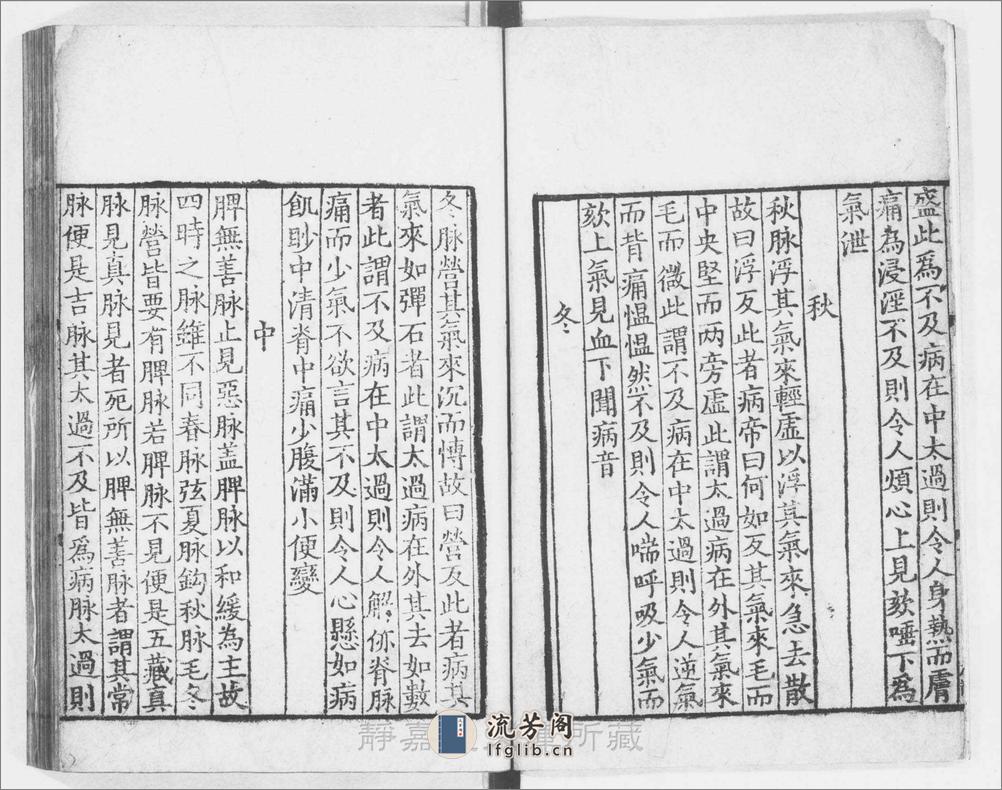 盛此爲不及病在中太過則令人身熱而膚
痛為浸淫不及則令人煩心上見欬唾下爲
氣泄
秋
秋脉浮其氣來輕虛以浮其氣來急去散
故曰浮反此者病帝曰何如反其氣來毛而
中央堅而两旁虛此謂太過病在外其氣來
毛而微此謂不及病在中太過則令人逆氣
而背痛慍慍然不及則令人喘呼吸少氣而
欬上氣見血下聞病音
冬
冬脉營其氣來沉而慱故曰營反此者病其
氣來如彈石者此謂太過病在外其去如數
者此謂不及病在中太過則令人解㑊脊脉
痛而少氣不欲言其不及則令人心懸如病
飢䏚中清脊中痛少腹滿小便變
中
脾無善脉止見惡脉盖脾脉以和緩為主故
四時之脉雖不同春脉弦夏脉鈎秋脉毛冬
脉營皆要有脾脉若脾脉不見便是五藏真
脉見真脉見者死所以脾無善脉者謂其常
脉便是吉脉其太過不及皆爲病脉太過則
静嘉堂文庫所藏
流芳阁
lfglib.cn